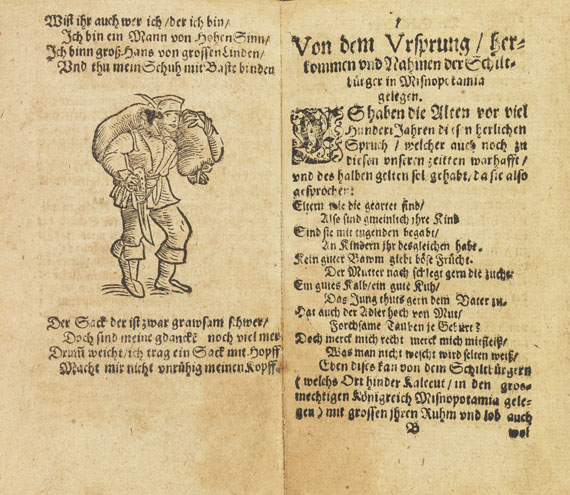 Wist ihr auch wer ich / der ich bin /
Ich bin ein Mann von Hohen Sinn /
Ich binn groß Hans von grossen Linden /
Vnd thu mein Schuh mit Baste binden
Der Sack der ist zwar grawsam schwer /
Doch sind meine gdancke noch viel mer
Drum̃ weicht / ich trag ein Sack mit Hopff
Macht mir nicht vnrühig meinen Kopff
Von dem Vrsprung / Her-
kommen vnd Nahmen der Schilt-
bürger in Misnopotamia
gelegen.
ES haben die Alten vor viel
Hundert Jahren diesen herlichen
Spruch / welcher auch noch zu
diesen vnseren zeitten warhafft /
vnd des halben gelten sol gehabt, da sie also
gesprochen:
Eltern wie die geartet sind /
Also sind gmeinlich ihre Kind
Sind sie mit tugenden begabt /
An Kindern ihr desgleichen habt.
Kein guter Bawm giebt böse Frücht.
Der Mutter nach schlegt gern die zucht
Ein gutes Kalb / ein gute Kuh /
Das Jung thuts gern dem Vater zu.
Hat auch der Adler hoch von Mut /
Forchsame Tauben je Gebrut?
Doch merck mich recht merck mich mit fleiß /
Was man nicht wescht wird selten weiß /
Eben dises kan von dem Schiltbürgern
( welchs Ort hinder Kalecut / in den gros-
mechtigen Königreich Misnopotamia gele-
gen ) mit grossen ihren Ruhm vnd lob auch
B
wol